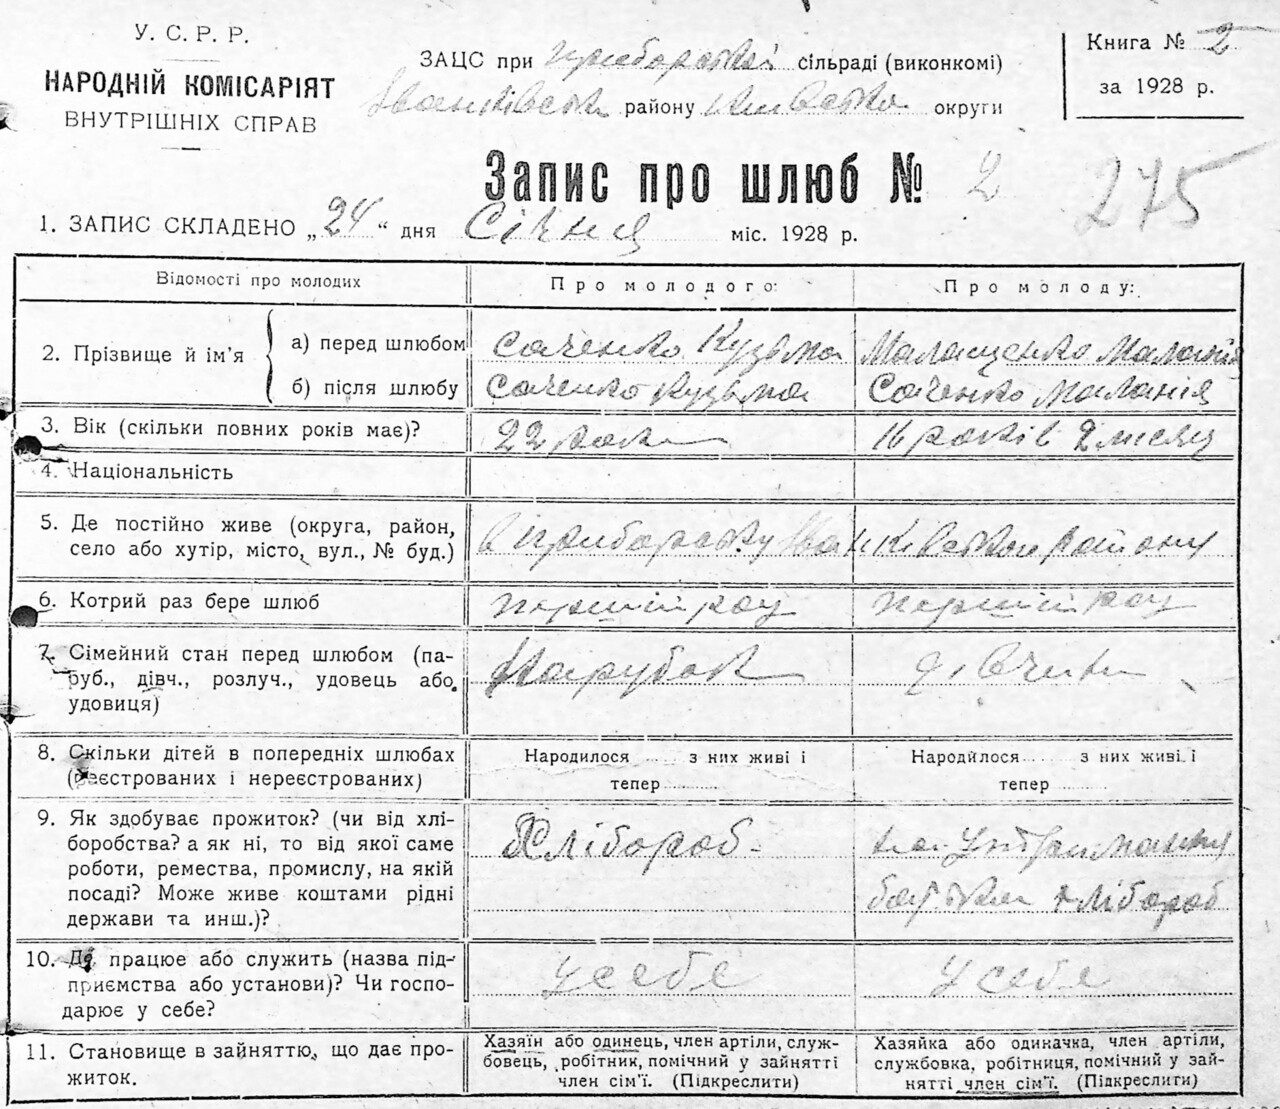 У. С. Р. Р.
НАРОДНІЙ КОМІСАРІЯТ
ВНУТРІШНІХ СПРАВ
ЗАЦС при Приборській сільраді (виконкомі)
Іванківськ району Київська округи
Книга № 2
за 1928 р.
Запис про шлюб № 2
275
1. ЗАПИС СКЛАДЕНО „24“ дня Січня міс. 1928 р.
Відомості про молодих
Про молодого:
Про молоду:
2. Прізвище й ім'я
а) перед шлюбом
Саченко Кузьма
Малащенко Маланія
б) після шлюбу
Саченко Кузьма
Саченко Маланія
3. Вік (скільки повних років має)?
22 роки
16 років 2 місяц
4. Національність
5. Де постійно живе (округа, район,
село або хутір, місто, вул., № буд.)
в Приборську Іванківського району
6. Котрий раз бере шлюб
перший раз
перший раз
7. Сімейний стан перед шлюбом (па-
руб., дівч., розлуч., удовець або
удовиця)
Парубок
дівчина
8. Скільки дітей в попередніх шлюбах
(реєстрованих і нереєстрованих)
Народилося ..... з них живі і
тепер ..........
Народилося ..... з них живі і
тепер ........
9. Як здобуває прожиток? (чи від хлі-
боробства? а як ні, то від якої саме
роботи, ремества, промислу, на якій
посаді? Може живе коштами рідні
держави та инш.)?
Хлібороб
на утриманні
батька хлібороб
10. Де працює або служить (назва під-
приємства або установи)? Чи госпо-
дарює у себе?
у себе
у себе
11. Становище в зайняттю, що дає про-
житок.
Хазяїн або одинець, член артіли, служ-
бовець, робітник, помічний у зайнятті
член сім'ї. (Підкреслити)
Хазяйка або одиначка, член артіли,
службовка, робітниця, помічний у зай-
нятті член сім'ї. (Підкреслити)